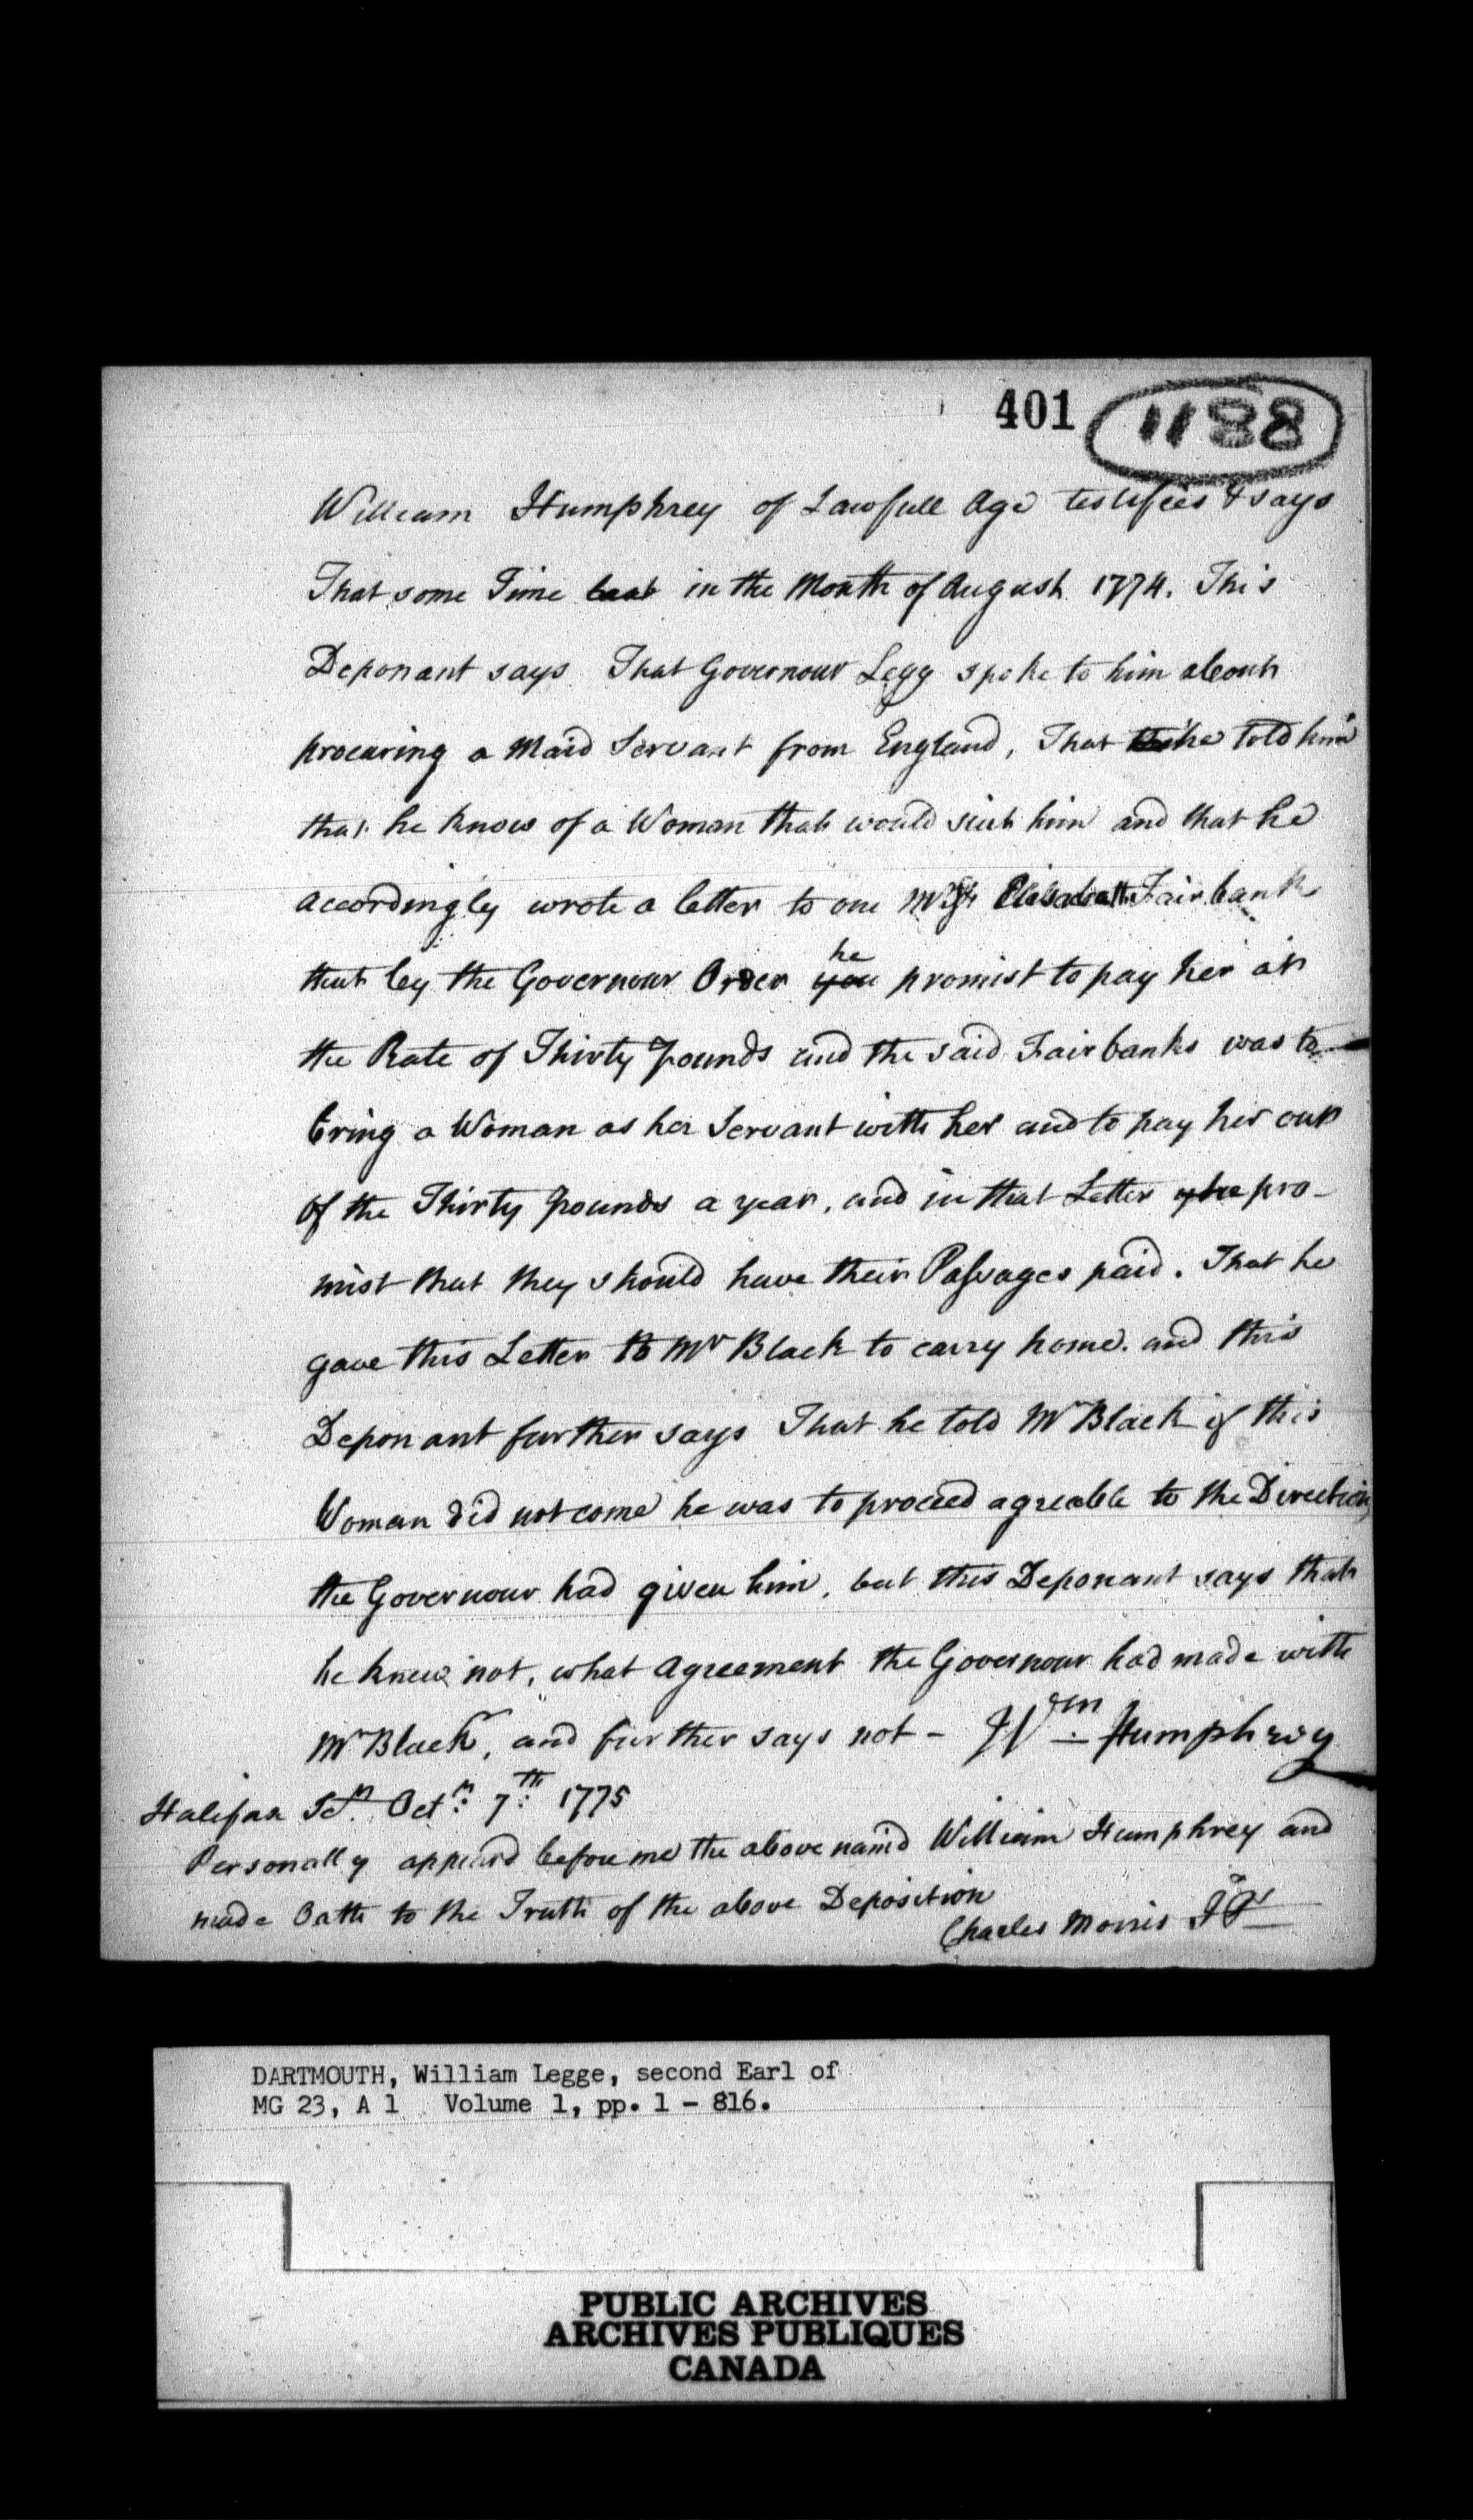 401 1188
William Humphrey of Lawfull Age testifies & says
That some Time last in the Month of August 1774. This
Deponant says That Governour Legg spoke to him about
procuring a Maid Servant from England, That he told him
that he know of a Woman that would suit him and that he
accordingly wrote a letter to one Elisabeth Fairbanks
that by the Governour Order you he promist to pay her at
the Rate of Thirty pounds and the said Fairbanks was to
bring a Woman as her Servant with her and to pay her out
of the Thirty pounds a year, and in that Letter he pro-
mist that they should have their Passages paid. That he
gave this Letter to Mr Black to carry home. and this
Deponant further says That he told Mr Black if this
Woman did not come he was to proceed agreeable to the Direction
the Governour had given him, but this Deponant says that
he knew not, what Agreement the Governour had made with
Mr Black, and further says not - Wm Humphrey
Halifax Octr: 7th: 1775
Personally appeard before me the above namd William Humphrey and
made Oath to the Truth of the above Deposition
Charles Morris JP
DARTMOUTH, William Legge, second Earl of
MG 23, A 1 Volume 1, pp. 1 - 816.
PUBLIC ARCHIVES
ARCHIVES PUBLIQUES
CANADA